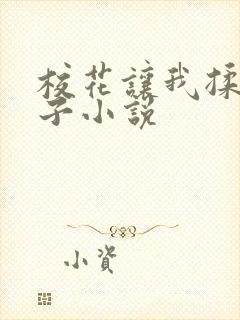 校花讓我揉
子小說
小資